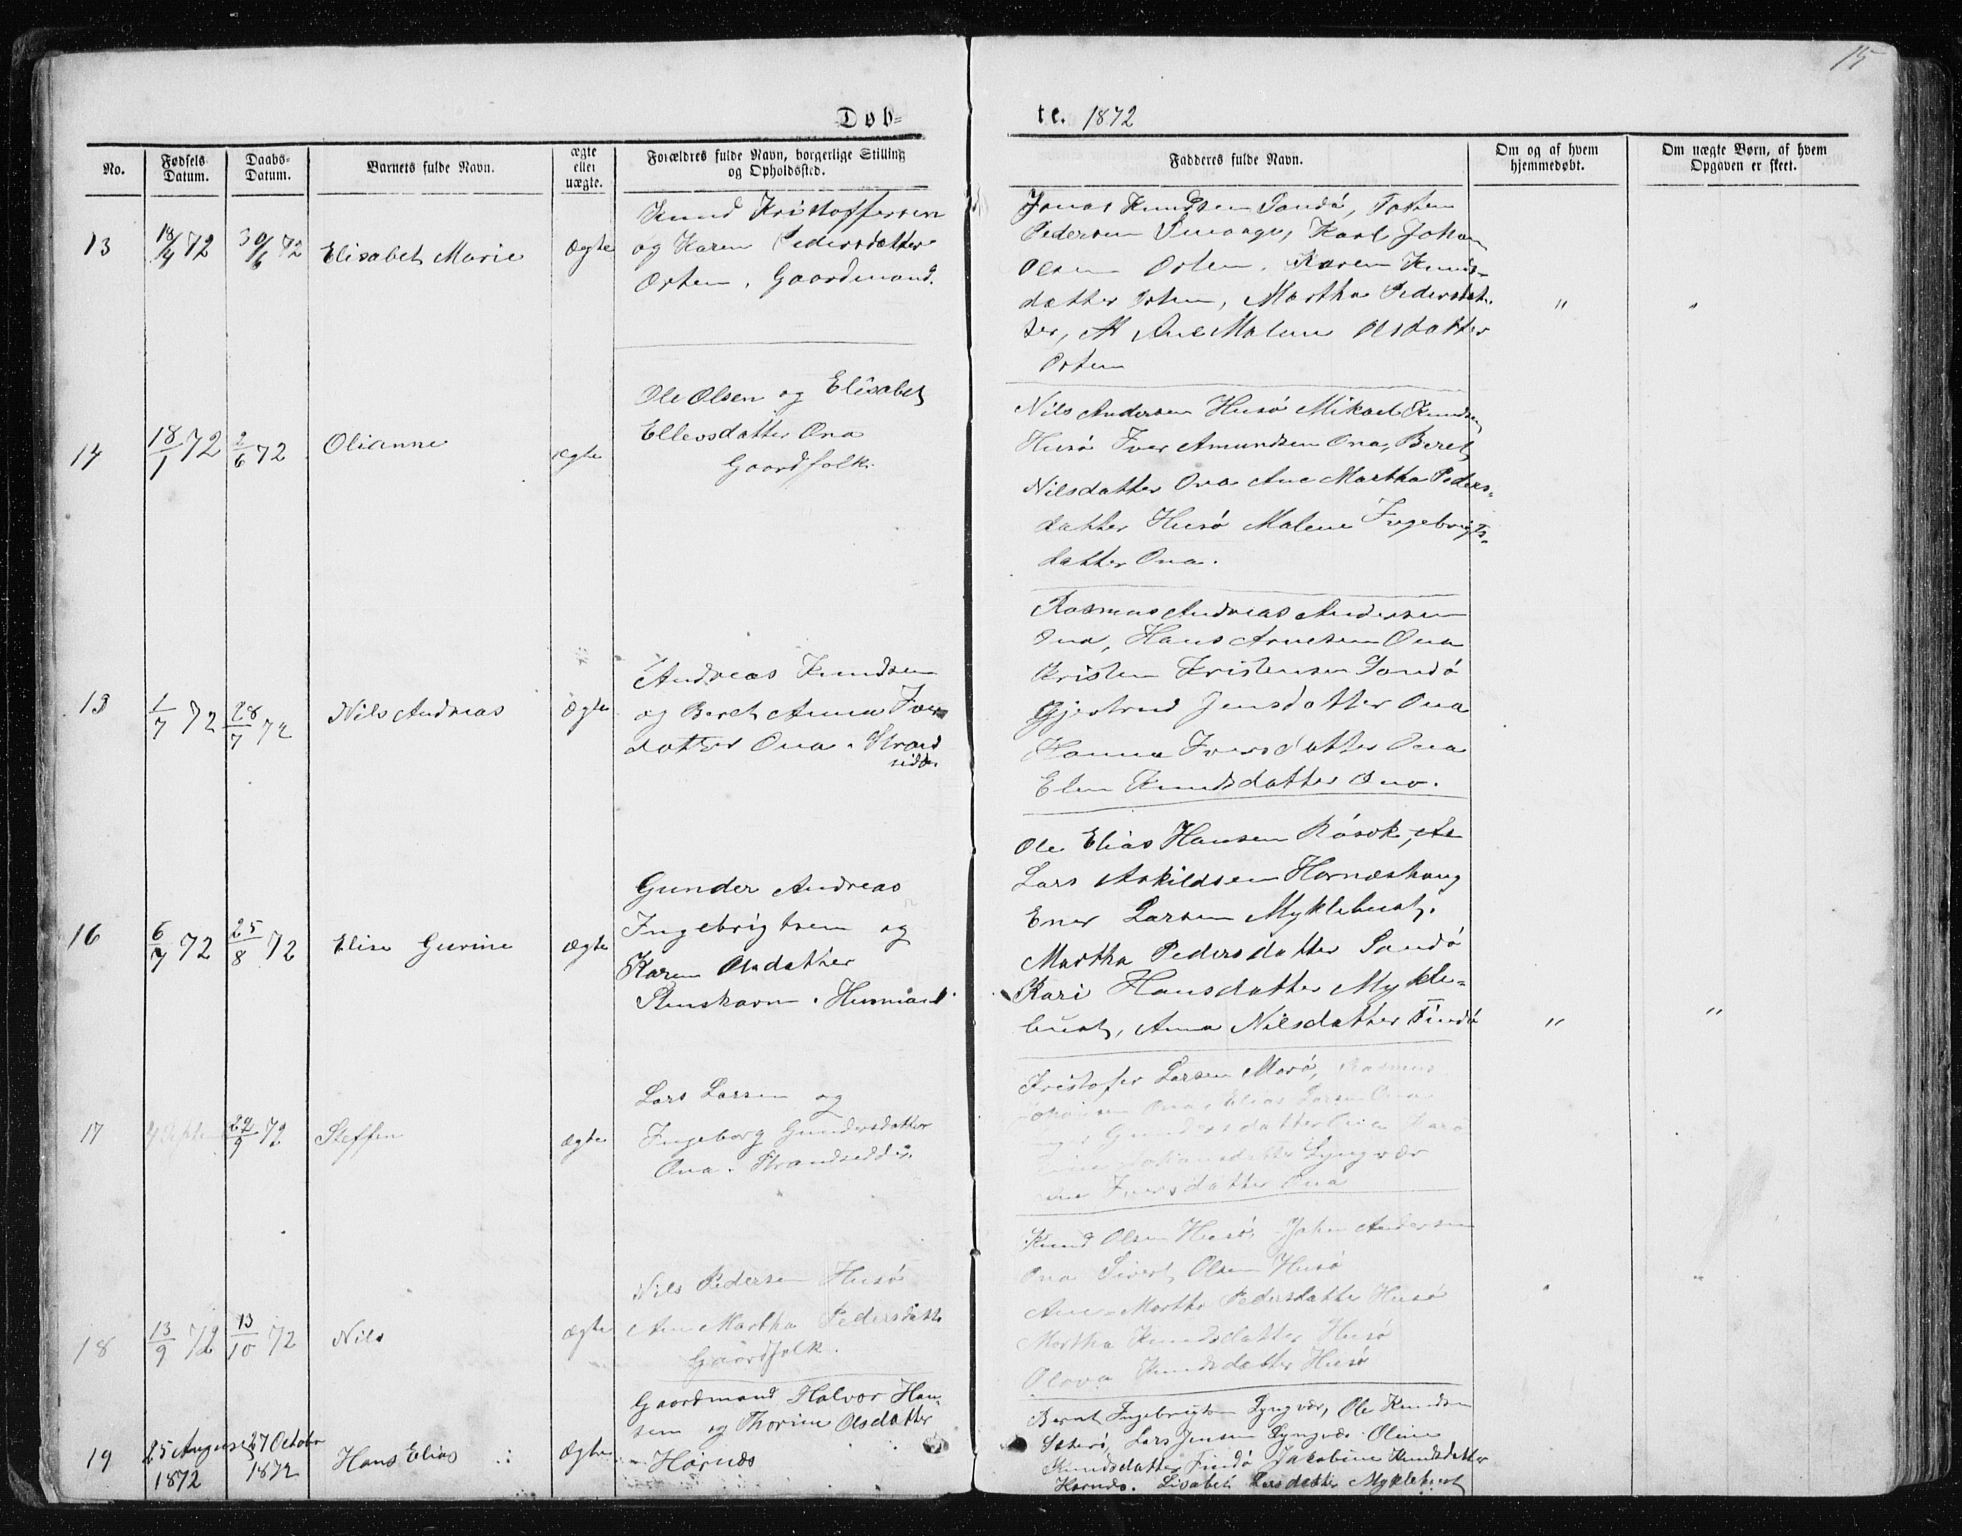 15
Døb= te. 1872
No.
Fødsels Datum.
Daabs- Datum.
Barnets fulde Navn.
ægte eller uægte.
Forældres fulde Navn, borgerlige Stilling og Opholdssted.
Fadderes fulde Navn.
Om og af hvem hjemmedøbt.
Om uægte Børn, af hvem Opgaven er skeet.
13
18/4 72
30/6 72
Elisabet Marie
Ægte
Knud Kristoffersen
og Karen Pedersdatter
Orten, Gaardmand.
Jonas Knudsen Sandö,
Pedersen Karl Johan
Olsen Orten, Karen Knuds-
datter Orten, Martha Pedersdat-
ter, Ane Malene Olsdatter
Orten
"
"
14
18/1 72
2/6 72
Olianne
ægte
Ole Olsen og Elisabet
Ellevsdatter Ona
Gaardfolk.
Nils Andersen Husö Mikael Knudsen
Husö Iver Amundsen Ona, Beret
Nilsdatter Ona Ane Martha Peders-
datter Husö Malene Ingebrigts-
datter Ona.
13
1/7 72
28/7 72
Nils Andreas
Ægte
Andreas Knudsen
og Beret Anna Iver
datter Ona. Strand
sidde.
Rasmus Andreas Andersen
Ona, Hans Arnesen Ona
Kristen Kristensen Sandö
Gjertrud Jensdatter Ona
Hanna Iversdatter Ona
Elen Knudsdatter Ona.
16
6/7 72
25/8 72
Elise Gurine
Ægte
Gunder Andreas
Ingebrigtsen og
Karen Olsdatter
Stenshavn. Husmand.
Ole Elias Hansen Rösok,
Lars Askildsen Harnæshaug
Ener Larsen Myklebust.
Martha Pedersdatter Sandö
Kari Hansdatter Mykle-
bust, Anna Nilsdatter Findö
"
"
17
22/9 72
Steffen
ægte
Lars Larsen og
Ingeborg Gundersdatter
Ona. Strandsidder.
Kristofer Larsen Morö, Rasmus
Ona, Elias Larsen Ona
Gundersdatter
Lyngvær
Iversdatter Ona
18
13/9 72
13/10 72
Nils
Ægte
Nils Pedersen Husö
Ane Martha Pedersdatte
Gaardfolk.
Knud Olsen Husö, Johan Andersen
Ona Sivert Olsen Husö
Ane Martha Pedersdatte Husö
Martha Knudsdatter Husö
Olava Knudsdatter Husö
"
"
19
25 August
1872
27 Octobr
1872
Hans Elias
Ægte
Gaardmand Halvor Han-
sen og Thorine Olsdatter
Harnæs
Bernt Ingebrigtsen Lyngvær, Ole Knudsen
Sæterö, Lars Jensen Lyngvær Oline
Knudsdatter Findö Jakobine Knudsdatter
Harnæs. Lisabet Larsdatter Myklebust